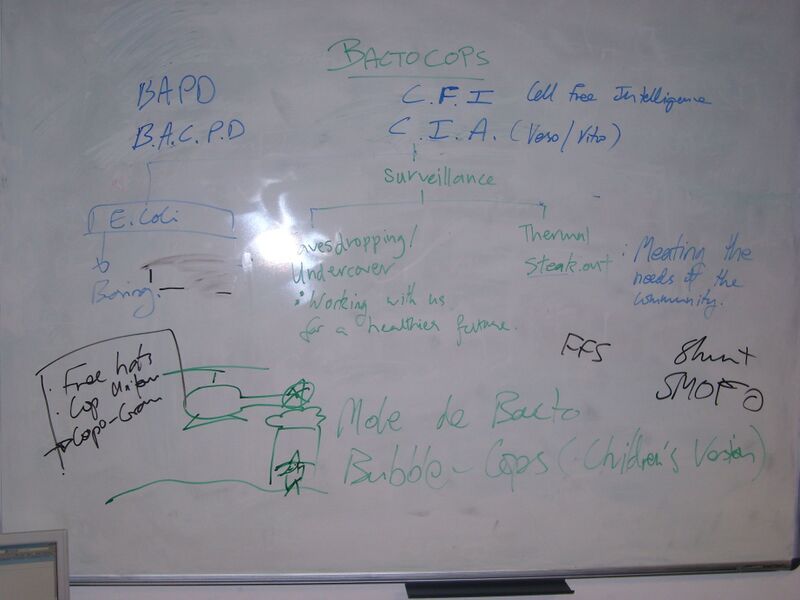 BACTOCOPS
BAPD
C.F.I Cell Free Intelligence
B.A.C.P.D
C.I.A. (Veso/Vito)
Surveillance
E.Coli
Boring.
Eavesdropping/
Undercover
• Working with us
for a healthier future.
Thermal
Steak.out
: Meating the
needs of the
community.
FFS
Shunt
SMOFO
• Free hats
• Cop Uniform
Copo-Gram
Mole de Bacto
Bubble-Cops (Children's Version)